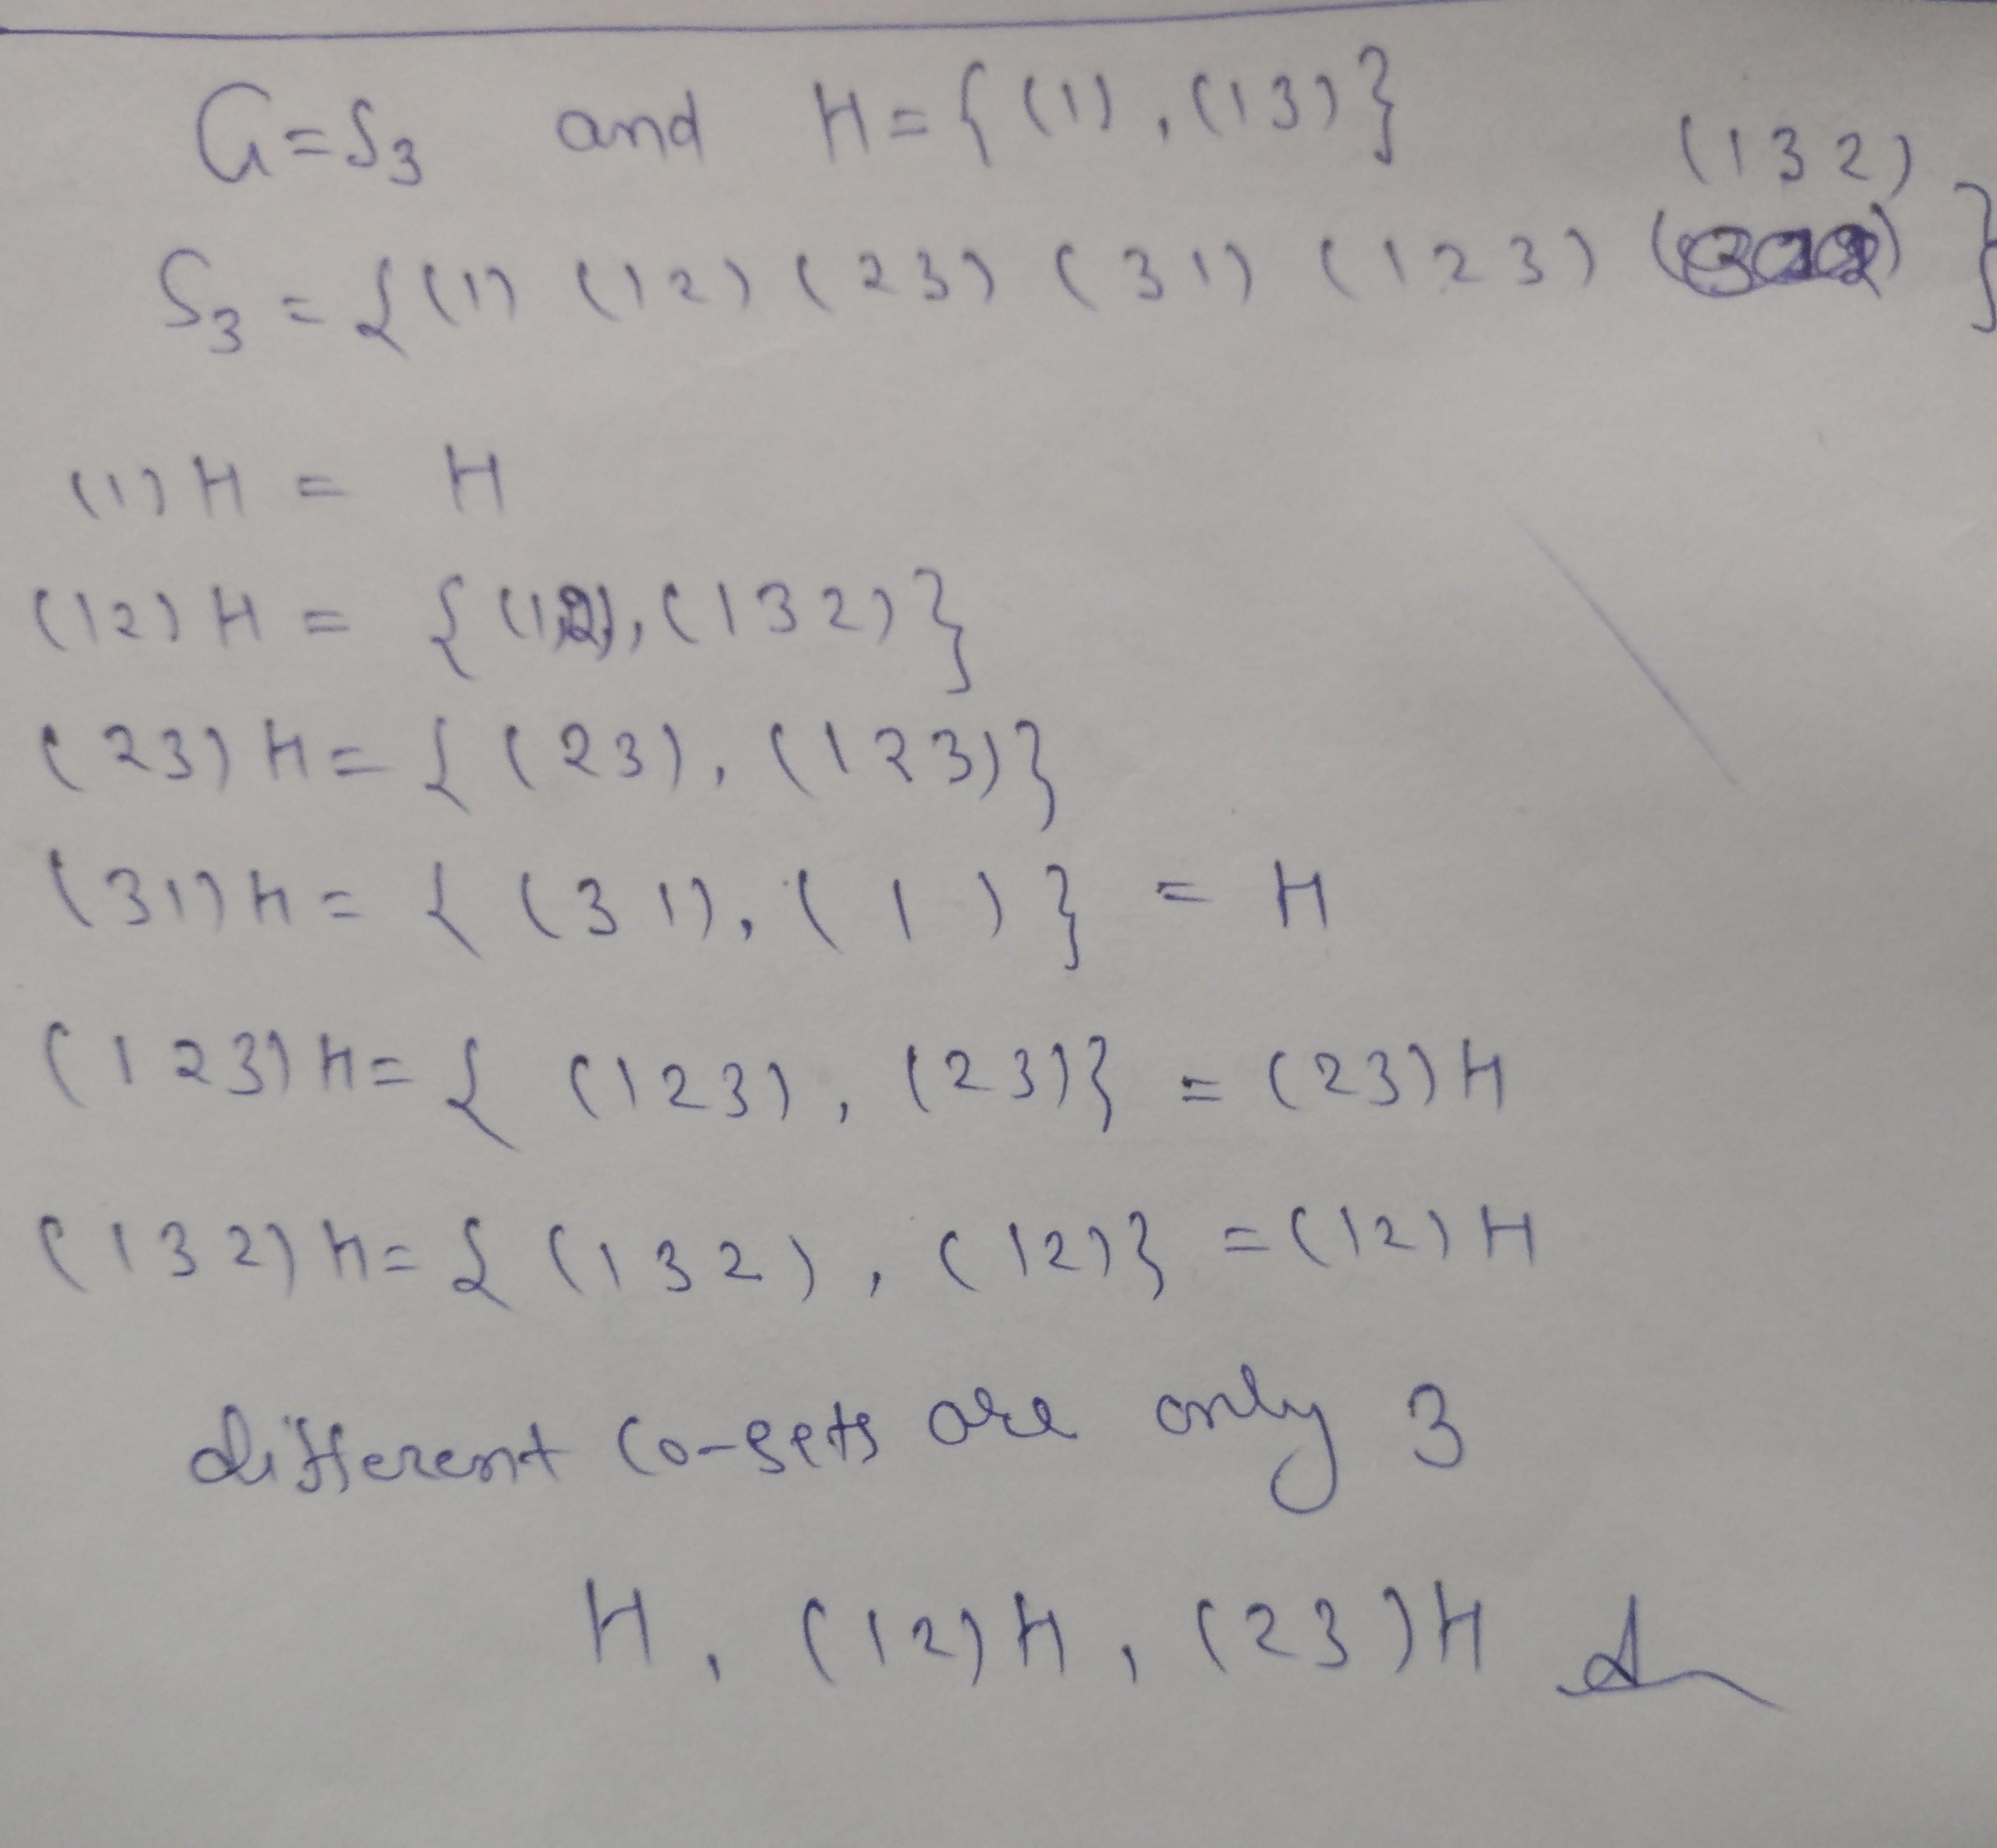 G=S₃ and H={(1),(13)}
(132)
S₃={(1) (12) (23) (31) (123) }
(1)H = H
(12)H = {(12),(132)}
(23)H={(23),(123)}
(31)H={(31),(1)} = H
(123)H={(123),(23)} = (23)H
(132)H={(132),(12)} =(12)H
different co-sets are only 3
H, (12)H, (23)H